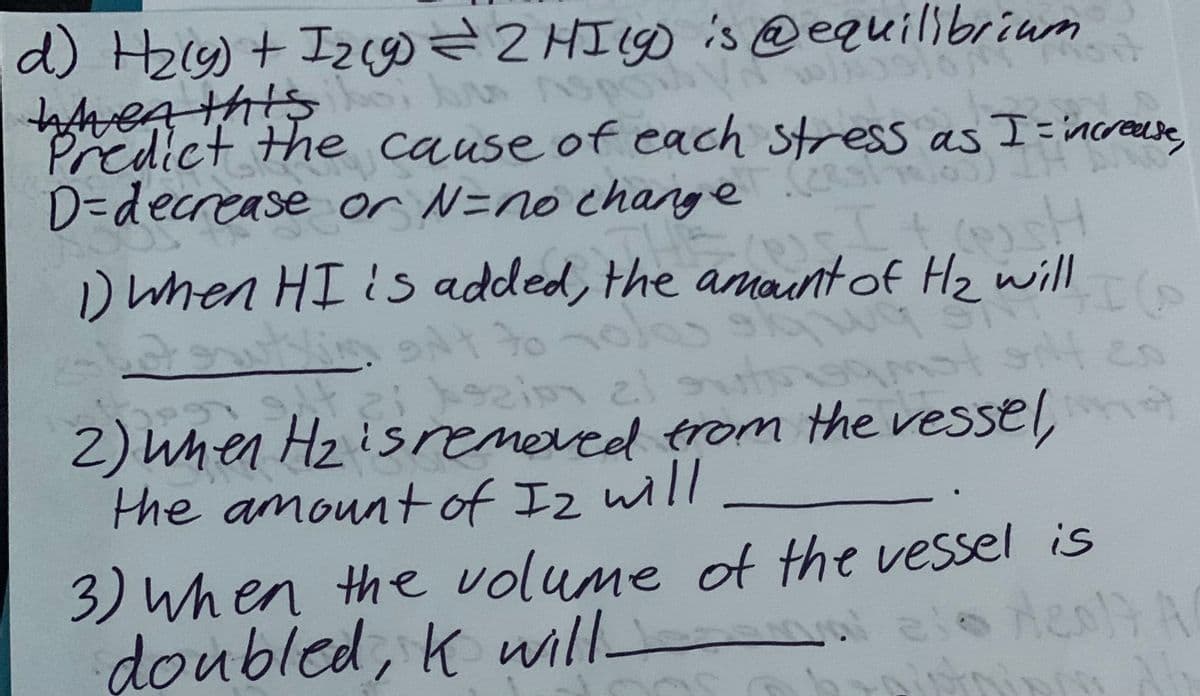 d) H2(g) + I2(g) ⇌ 2 HI(g) is @equilibrium
When this
Predict the cause of each stress as I=increase,
D=decrease or N=no change
1) when HI is added, the amount of H2 will
______.
2) when H2 is removed from the vessel,
the amount of I2 will ______.
3) when the volume of the vessel is
doubled, K will ______.